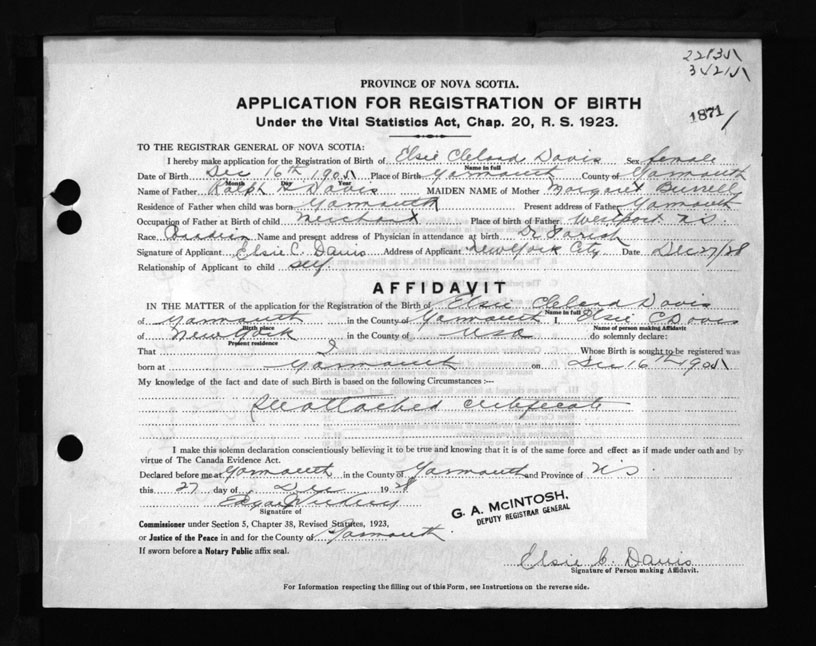 1871
PROVINCE OF NOVA SCOTIA.
APPLICATION FOR REGISTRATION OF BIRTH
Under the Vital Statistics Act, Chap. 20, R. S. 1923.
TO THE REGISTRAR GENERAL OF NOVA SCOTIA:
I hereby make application for the Registration of Birth of Elsie Cleland Davis Sex female
Name in full
Date of Birth Dec 16th 1905 Place of Birth Yarmouth County of Yarmouth
Month Day Year
Name of Father Ralph Davis MAIDEN NAME of Mother Margaret Burrell
Residence of Father when child was born Yarmouth Present address of Father Yarmouth
Occupation of Father at Birth of child Merchant Place of birth of Father Westport N.S.
Race Canadian Name and present address of Physician in attendance at birth Dr Farish
Signature of Applicant Elsie C. Davis Address of Applicant New York City Date Dec 27/28
Relationship of Applicant to child self
AFFIDAVIT
IN THE MATTER of the application for the Registration of the Birth of Elsie Cleland Davis
Name in full
of Yarmouth in the County of Yarmouth I, Elsie C Davis
Birth place Name of person making Affidavit
of New York in the County of USA do solemnly declare:
Present residence
That I Whose Birth is sought to be registered was
born at Yarmouth on Dec 16th 1905
My knowledge of the fact and date of such Birth is based on the following Circumstances :—
See attached certificate
I make this solemn declaration conscientiously believing it to be true and knowing that it is of the same force and effect as if made under oath and by
virtue of The Canada Evidence Act.
Declared before me at Yarmouth in the County of Yarmouth and Province of N S.
this 27 day of Dec 1928
Signature of
G. A. McINTOSH,
DEPUTY REGISTRAR GENERAL
Commissioner under Section 5, Chapter 38, Revised Statutes, 1923,
or Justice of the Peace in and for the County of Yarmouth.
If sworn before a Notary Public affix seal.
Elsie C. Davis
Signature of Person making Affidavit.
For Information respecting the filling out of this Form, see Instructions on the reverse side.